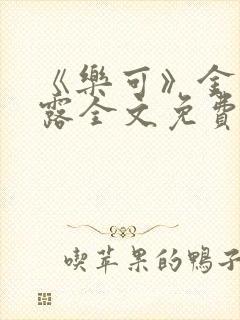 《樂可》金
露全文免費
喫苹果的鴨子